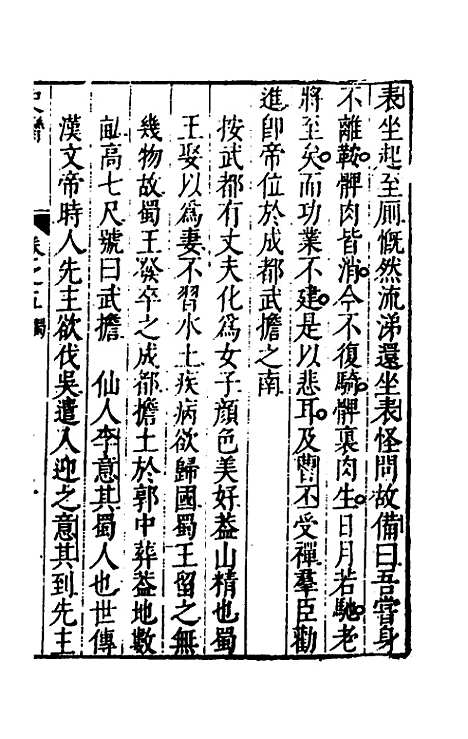 表坐起至厠慨然流涕還坐表怪問故備曰吾嘗身
不離鞍髀肉皆消今不復騎髀裏肉生日月若馳老
將至矣而功業不建是以悲耳及曹丕受禪羣臣勸
進卽帝位於成都武擔之南
按武都有丈夫化爲女子顔色美好葢山精也蜀
王娶以爲妻不習水土疾病欲歸國蜀王留之無
幾物故蜀王發卒之成都擔土於郭中葬葢地數
畝高七尺號曰武擔　仙人李意其蜀人也世傳
漢文帝時人先主欲伐吳遣人迎之意其到先主
卷之五 蜀